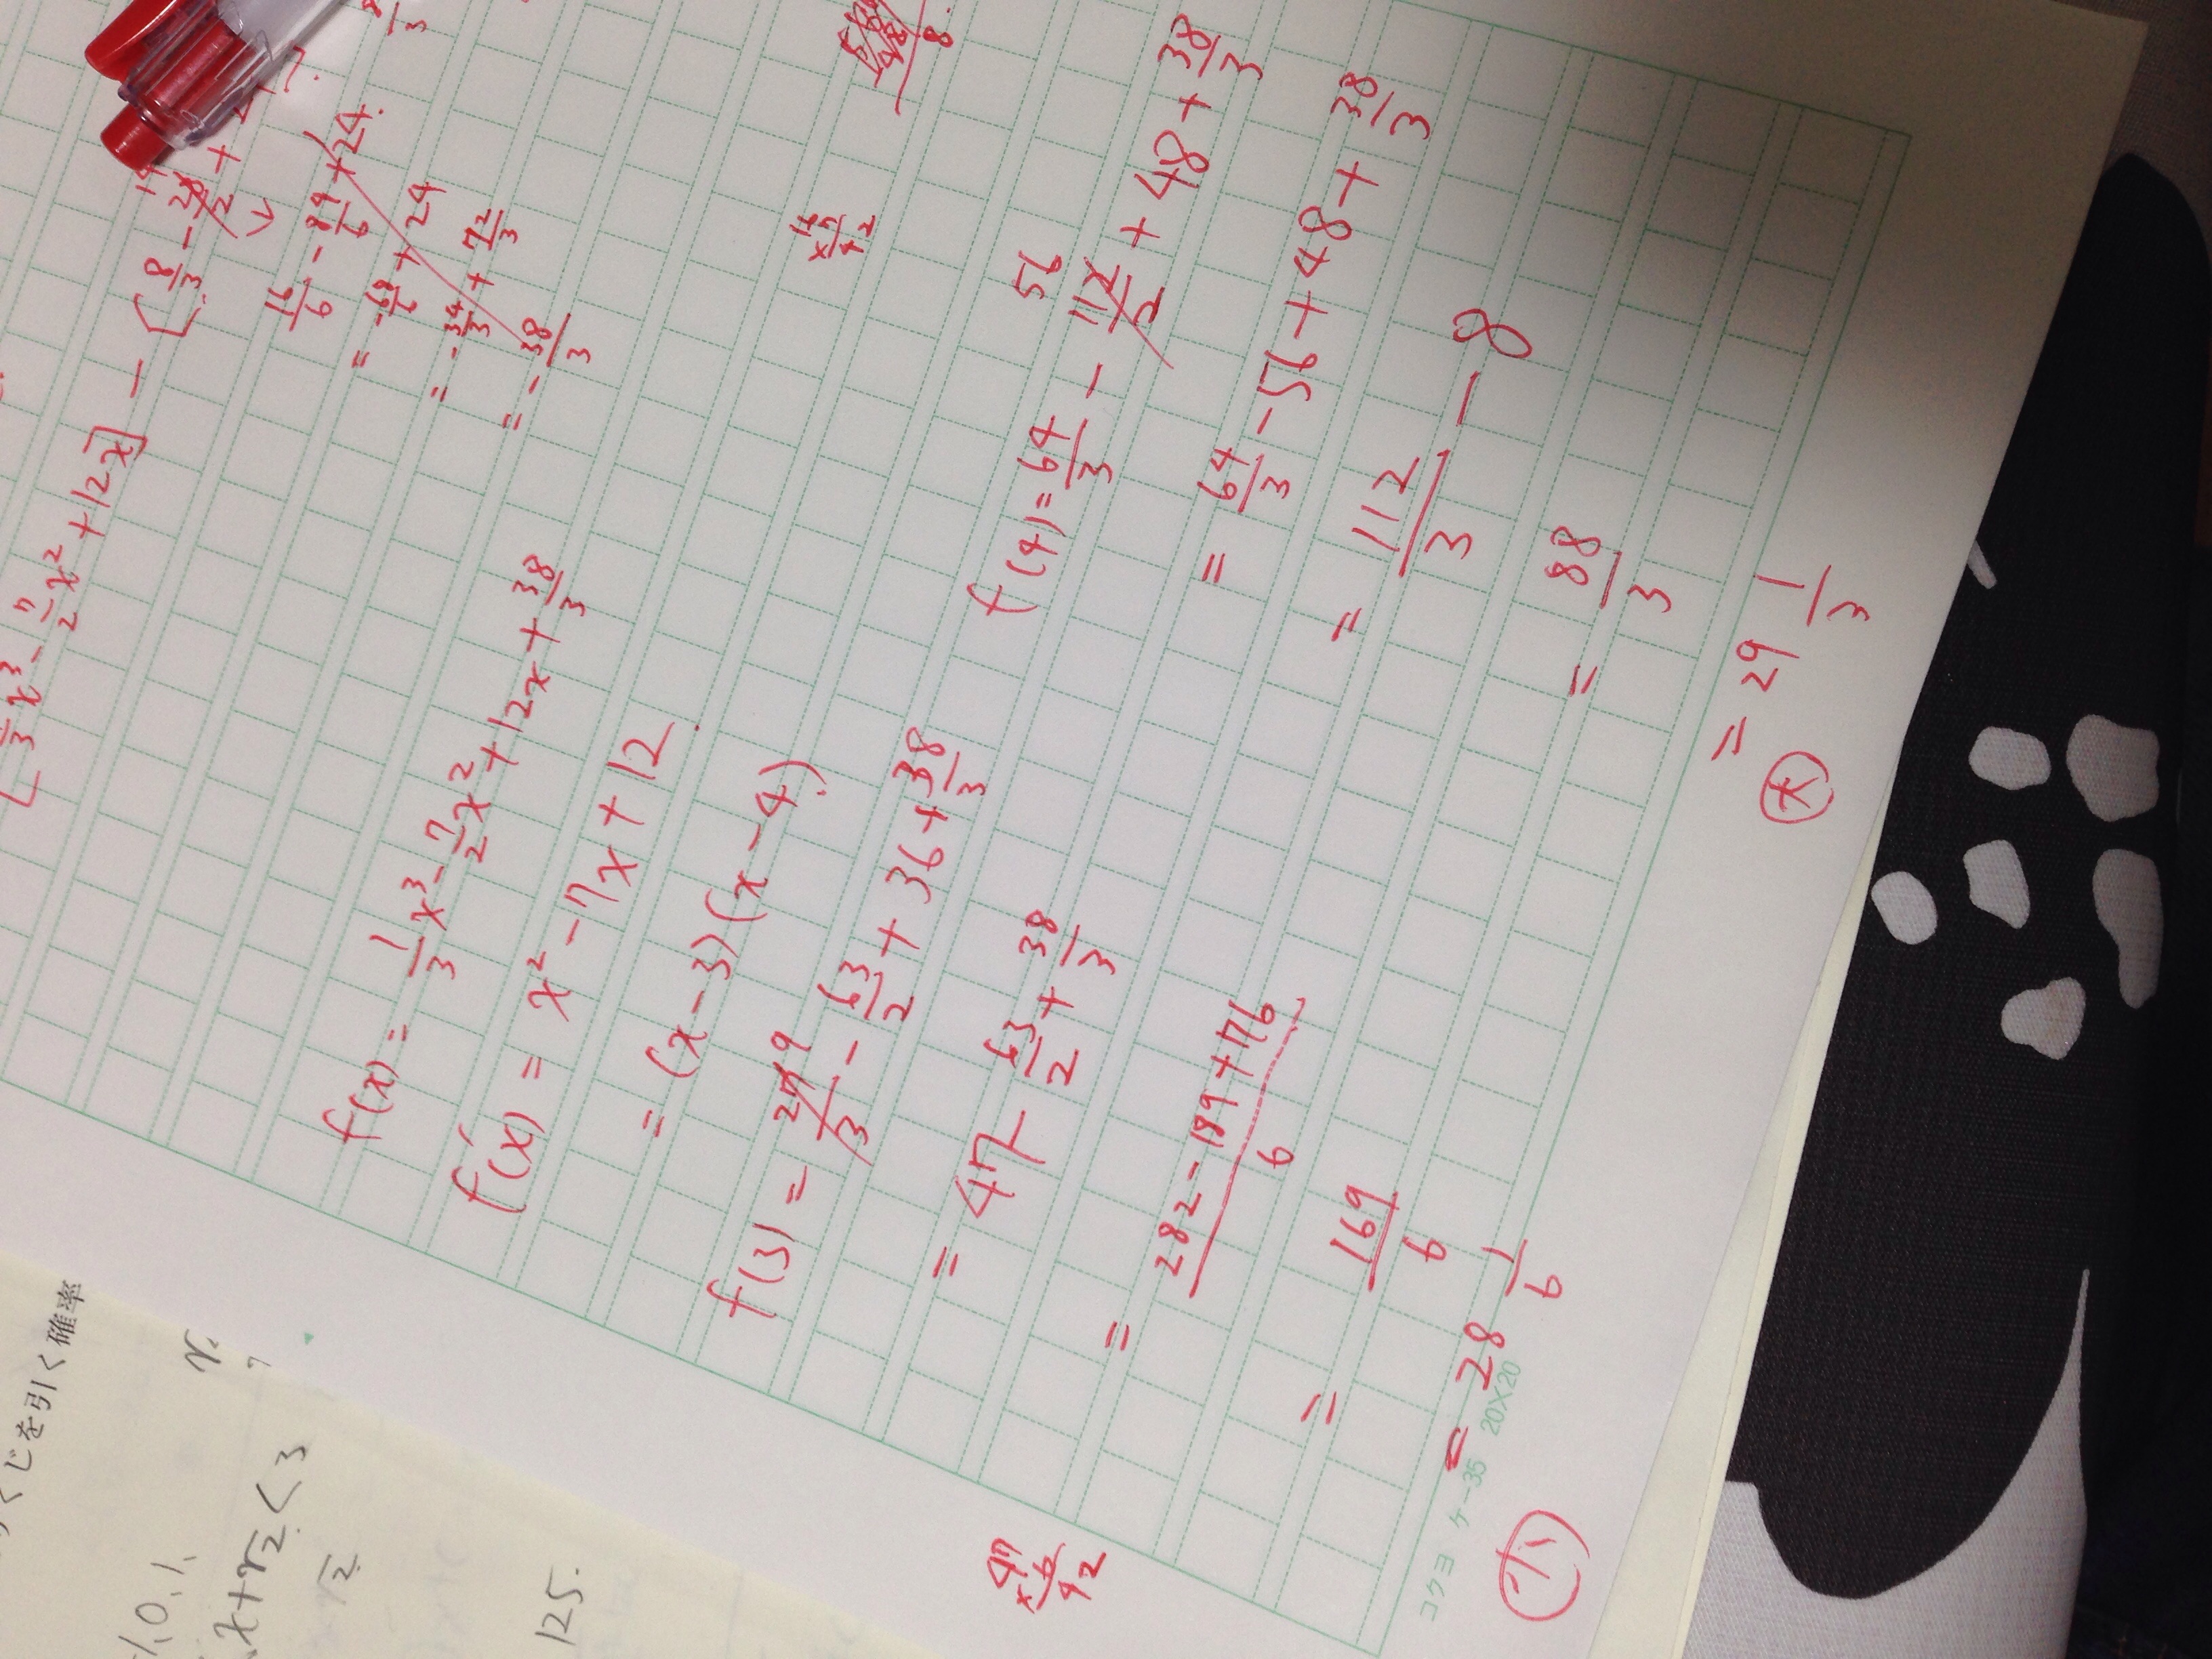 1/3 x³ - 7/2 x² + 12x] - [8/3 - 28/2 +
16/6 - 84/6 + 24.
= -68/6 + 24
= -34/3 + 72/3
= -38/3
f(x) = 1/3 x³ - 7/2 x² + 12x + 38/3
f'(x) = x² - 7x + 12
= (x-3)(x-4)
f(3) = 27/3 9 - 63/2 + 36 + 38/3
= 47 - 63/2 + 38/3
= 282 - 189 + 76 / 6
= 169/6
= 28 1/6
小
47
×6
42
f(4) = 64/3 - 112/2 56 + 48 + 38/3
= 64/3 - 56 + 48 + 38/3
= 112/3 - 8
= 88/3
= 29 1/3
大
コクヨ ケ-35 20×20
くじを引く確率
x+√2<3
√2
125.